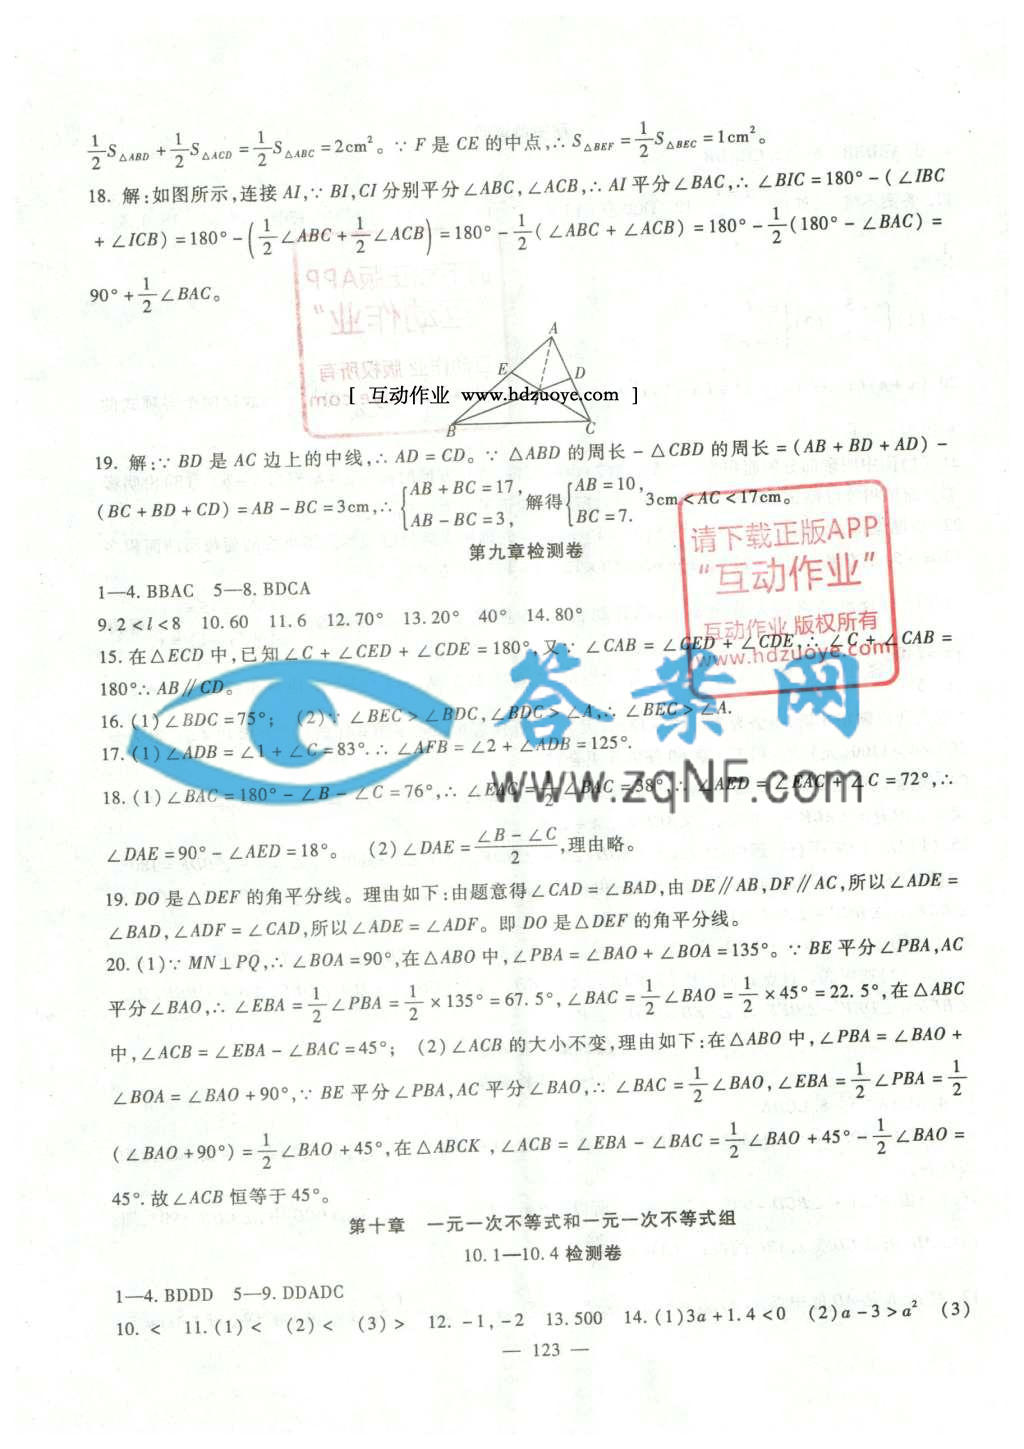 ½S△ABD + ½S△ACD = ½S△ABC = 2cm²。∵ F 是 CE 的中点,∴ S△BEF = ½S△BEC = 1cm²。
18. 解:如图所示,连接 AI,∵ BI,CI 分别平分∠ABC,∠ACB,∴ AI 平分∠BAC,∴ ∠BIC = 180° − (∠IBC
+ ∠ICB) = 180° − (½∠ABC + ½∠ACB) = 180° − ½(∠ABC + ∠ACB) = 180° − ½(180° − ∠BAC) =
90° + ½∠BAC。
A
E
D
[ 互动作业 www.hdzuoye.com ]
B
C
19. 解:∵ BD 是 AC 边上的中线,∴ AD = CD。∵ △ABD 的周长 − △CBD 的周长 = (AB + BD + AD) −
(BC + BD + CD) = AB − BC = 3cm,∴ { AB + BC = 17, AB − BC = 3, 解得 { AB = 10, BC = 7. 3cm < AC < 17cm。
第九章检测卷
请下载正版APP
“互动作业”
互动作业 版权所有
www.hdzuoye.com
1—4. BBAC 5—8. BDCA
9. 2 < l < 8 10. 60 11. 6 12. 70° 13. 20° 40° 14. 80°
15. 在△ECD 中,已知∠C + ∠CED + ∠CDE = 180°,又∵ ∠CAB = ∠CED + ∠CDE,∴ ∠C + ∠CAB =
180°∴ AB∥CD。
16. (1)∠BDC = 75°; (2)∵ ∠BEC > ∠BDC,∠BDC > ∠A,∴ ∠BEC > ∠A.
17. (1)∠ADB = ∠1 + ∠C = 83°.∴ ∠AFB = ∠2 + ∠ADB = 125°.
答案网
www.zqNF.com
18. (1)∠BAC = 180° − ∠B − ∠C = 76°,∴ ∠EAC = ½∠BAC = 38°,∴ ∠AED = ∠EAC + ∠C = 72°,∴
∠DAE = 90° − ∠AED = 18°。 (2)∠DAE = (∠B − ∠C)/2,理由略。
19. DO 是△DEF 的角平分线。理由如下:由题意得∠CAD = ∠BAD,由 DE∥AB,DF∥AC,所以∠ADE =
∠BAD,∠ADF = ∠CAD,所以∠ADE = ∠ADF。即 DO 是△DEF 的角平分线。
20. (1)∵ MN⊥PQ,∴ ∠BOA = 90°,在△ABO 中,∠PBA = ∠BAO + ∠BOA = 135°。∵ BE 平分∠PBA,AC
平分∠BAO,∴ ∠EBA = ½∠PBA = ½ × 135° = 67.5°,∠BAC = ½∠BAO = ½ × 45° = 22.5°,在△ABC
中,∠ACB = ∠EBA − ∠BAC = 45°; (2)∠ACB 的大小不变,理由如下:在△ABO 中,∠PBA = ∠BAO +
∠BOA = ∠BAO + 90°,∵ BE 平分∠PBA,AC 平分∠BAO,∴ ∠BAC = ½∠BAO,∠EBA = ½∠PBA = ½
(∠BAO + 90°) = ½∠BAO + 45°,在△ABCK ,∠ACB = ∠EBA − ∠BAC = ½∠BAO + 45° − ½∠BAO =
45°.故∠ACB 恒等于 45°。
第十章 一元一次不等式和一元一次不等式组
10.1—10.4 检测卷
1—4. BDDD 5—9. DDADC
10. < 11. (1) < (2) < (3) > 12. −1, −2 13. 500 14. (1)3a + 1.4 < 0 (2)a − 3 > a² (3)
— 123 —